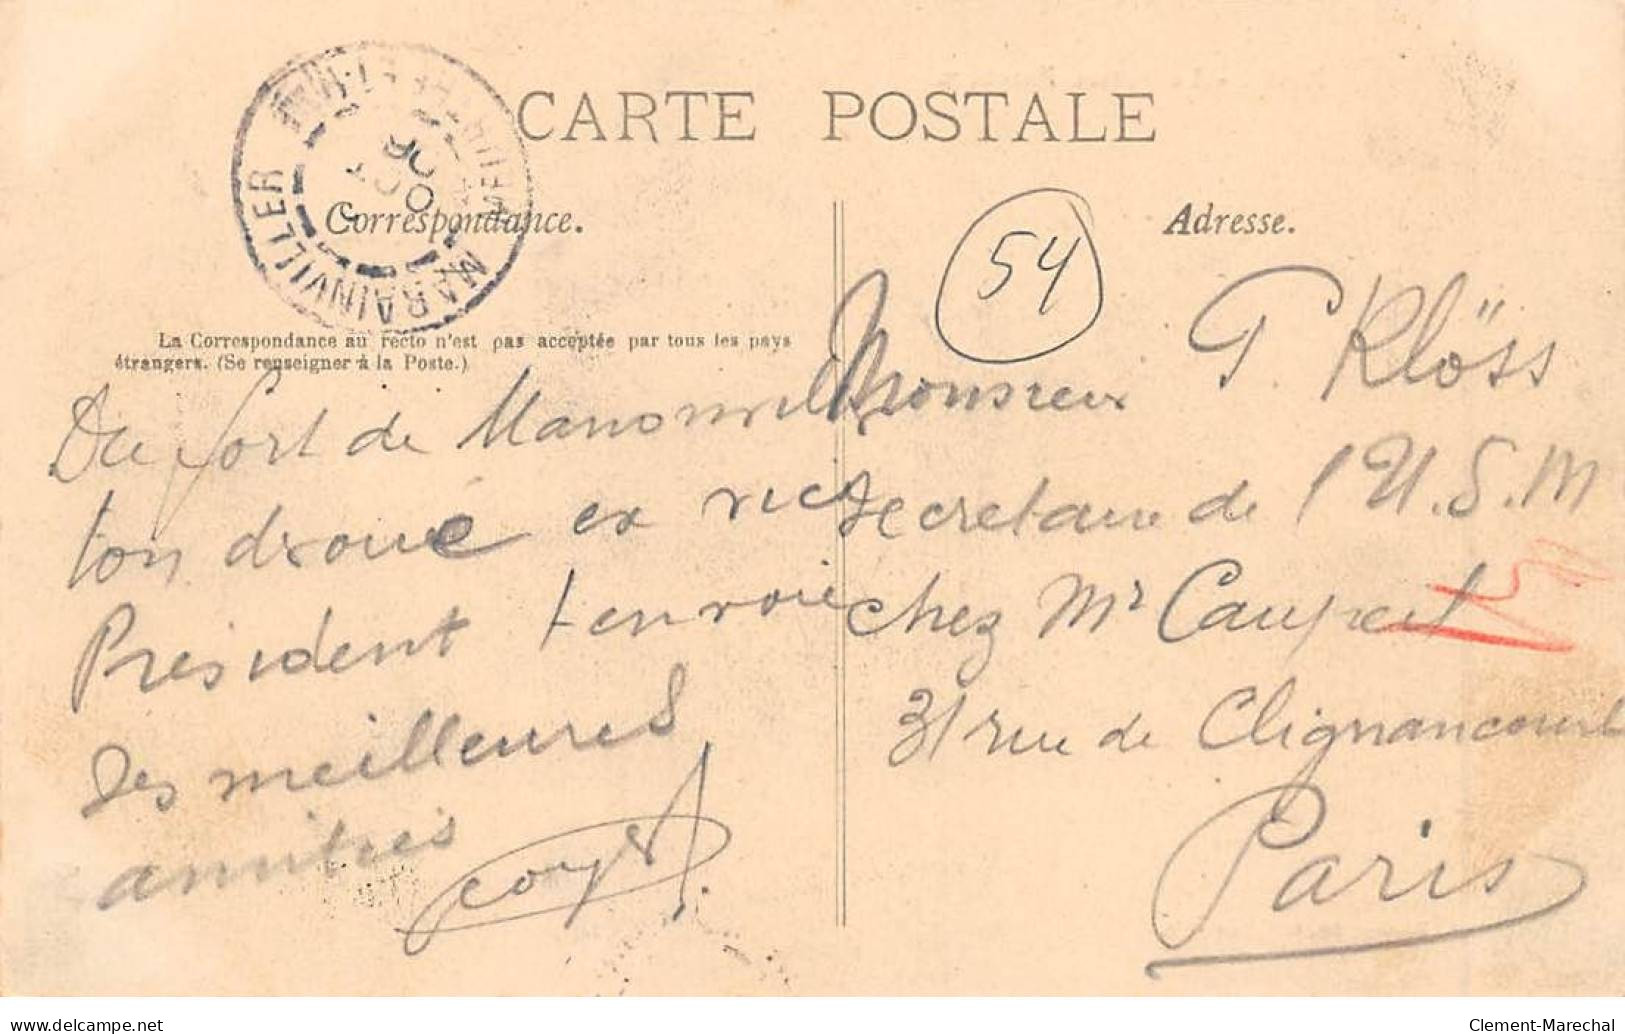 CARTE POSTALE
MARAINVILLER
Correspondance.
Adresse.
54
La Correspondance au recto n'est pas acceptée par tous les pays
étrangers. (Se renseigner à la Poste.)
Du fort de
ton ex vice
Président t envoie
ses meilleures
amitiés
Monsieur G. Klöss
secretaire de l U.S.M
chez Mr
31 rue de Clignancourt
Paris
www.delcampe.net
Clement-Marechal